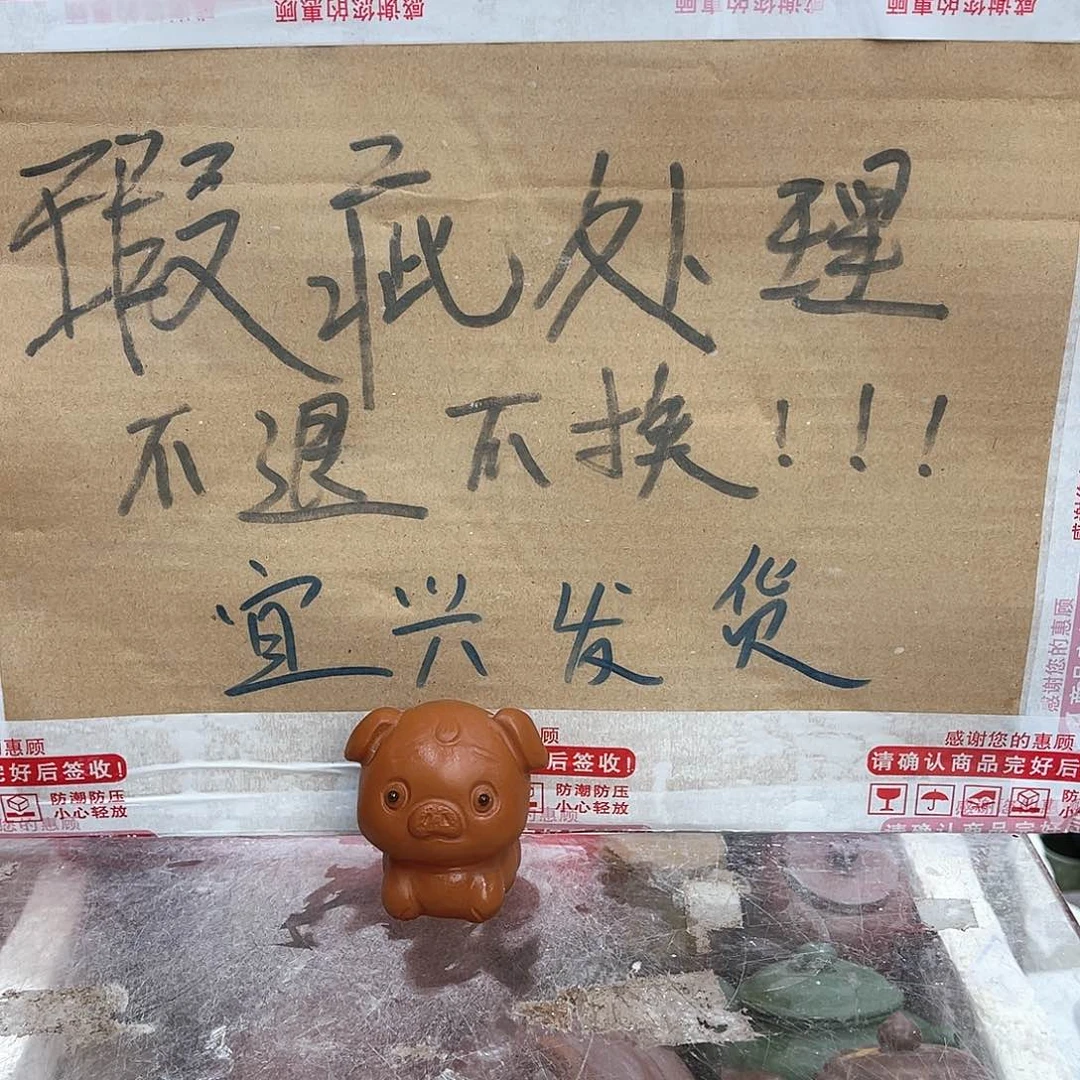 感谢您的惠顾
感谢您的惠顾
感谢您的惠顾
瑕疵处理
不退不换!!!
宜兴发货
感谢您的惠顾
惠顾
完好后签收!
防潮防压
小心轻放
顾
后签收!
防潮防压
小心轻放
感谢您的惠顾
请确认商品完好后
感谢您的惠顾
请确认商品完好